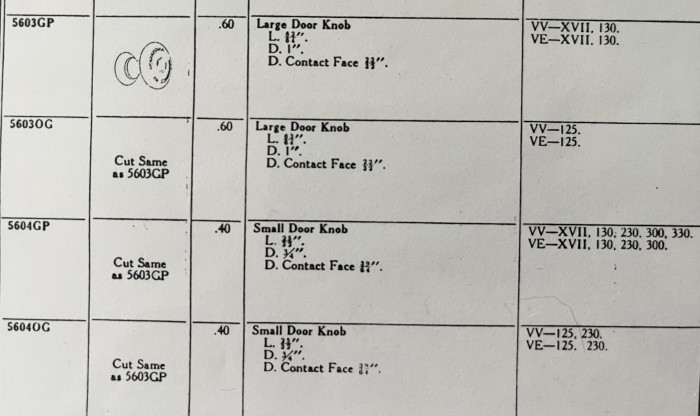 5603GP
.60
Large Door Knob
L.
D. 1".
D. Contact Face
VV—XVII, 130.
VE—XVII, 130.
5603OG
Cut Same
as 5603GP
.60
Large Door Knob
L.
D. 1".
D. Contact Face
VV—125.
VE—125.
5604GP
Cut Same
as 5603GP
.40
Small Door Knob
L.
D. ¾".
D. Contact Face
VV—XVII, 130, 230, 300, 330.
VE—XVII, 130, 230, 300.
5604OG
Cut Same
as 5603GP
.40
Small Door Knob
L.
D. ¾".
D. Contact Face
VV—125, 230.
VE—125. 230.